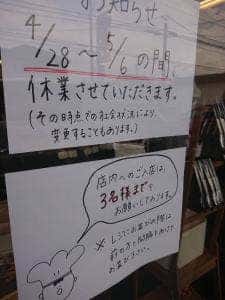 お知らせ
4/28～5/6の間、
休業させていただきます。
(その時点での社会状況により、
変更することもあります。)
店内へのご入店は、
3名様までで
お願いしております。
※レジにお並びの際は
前の方と間隔をあけて
お並び下さい。